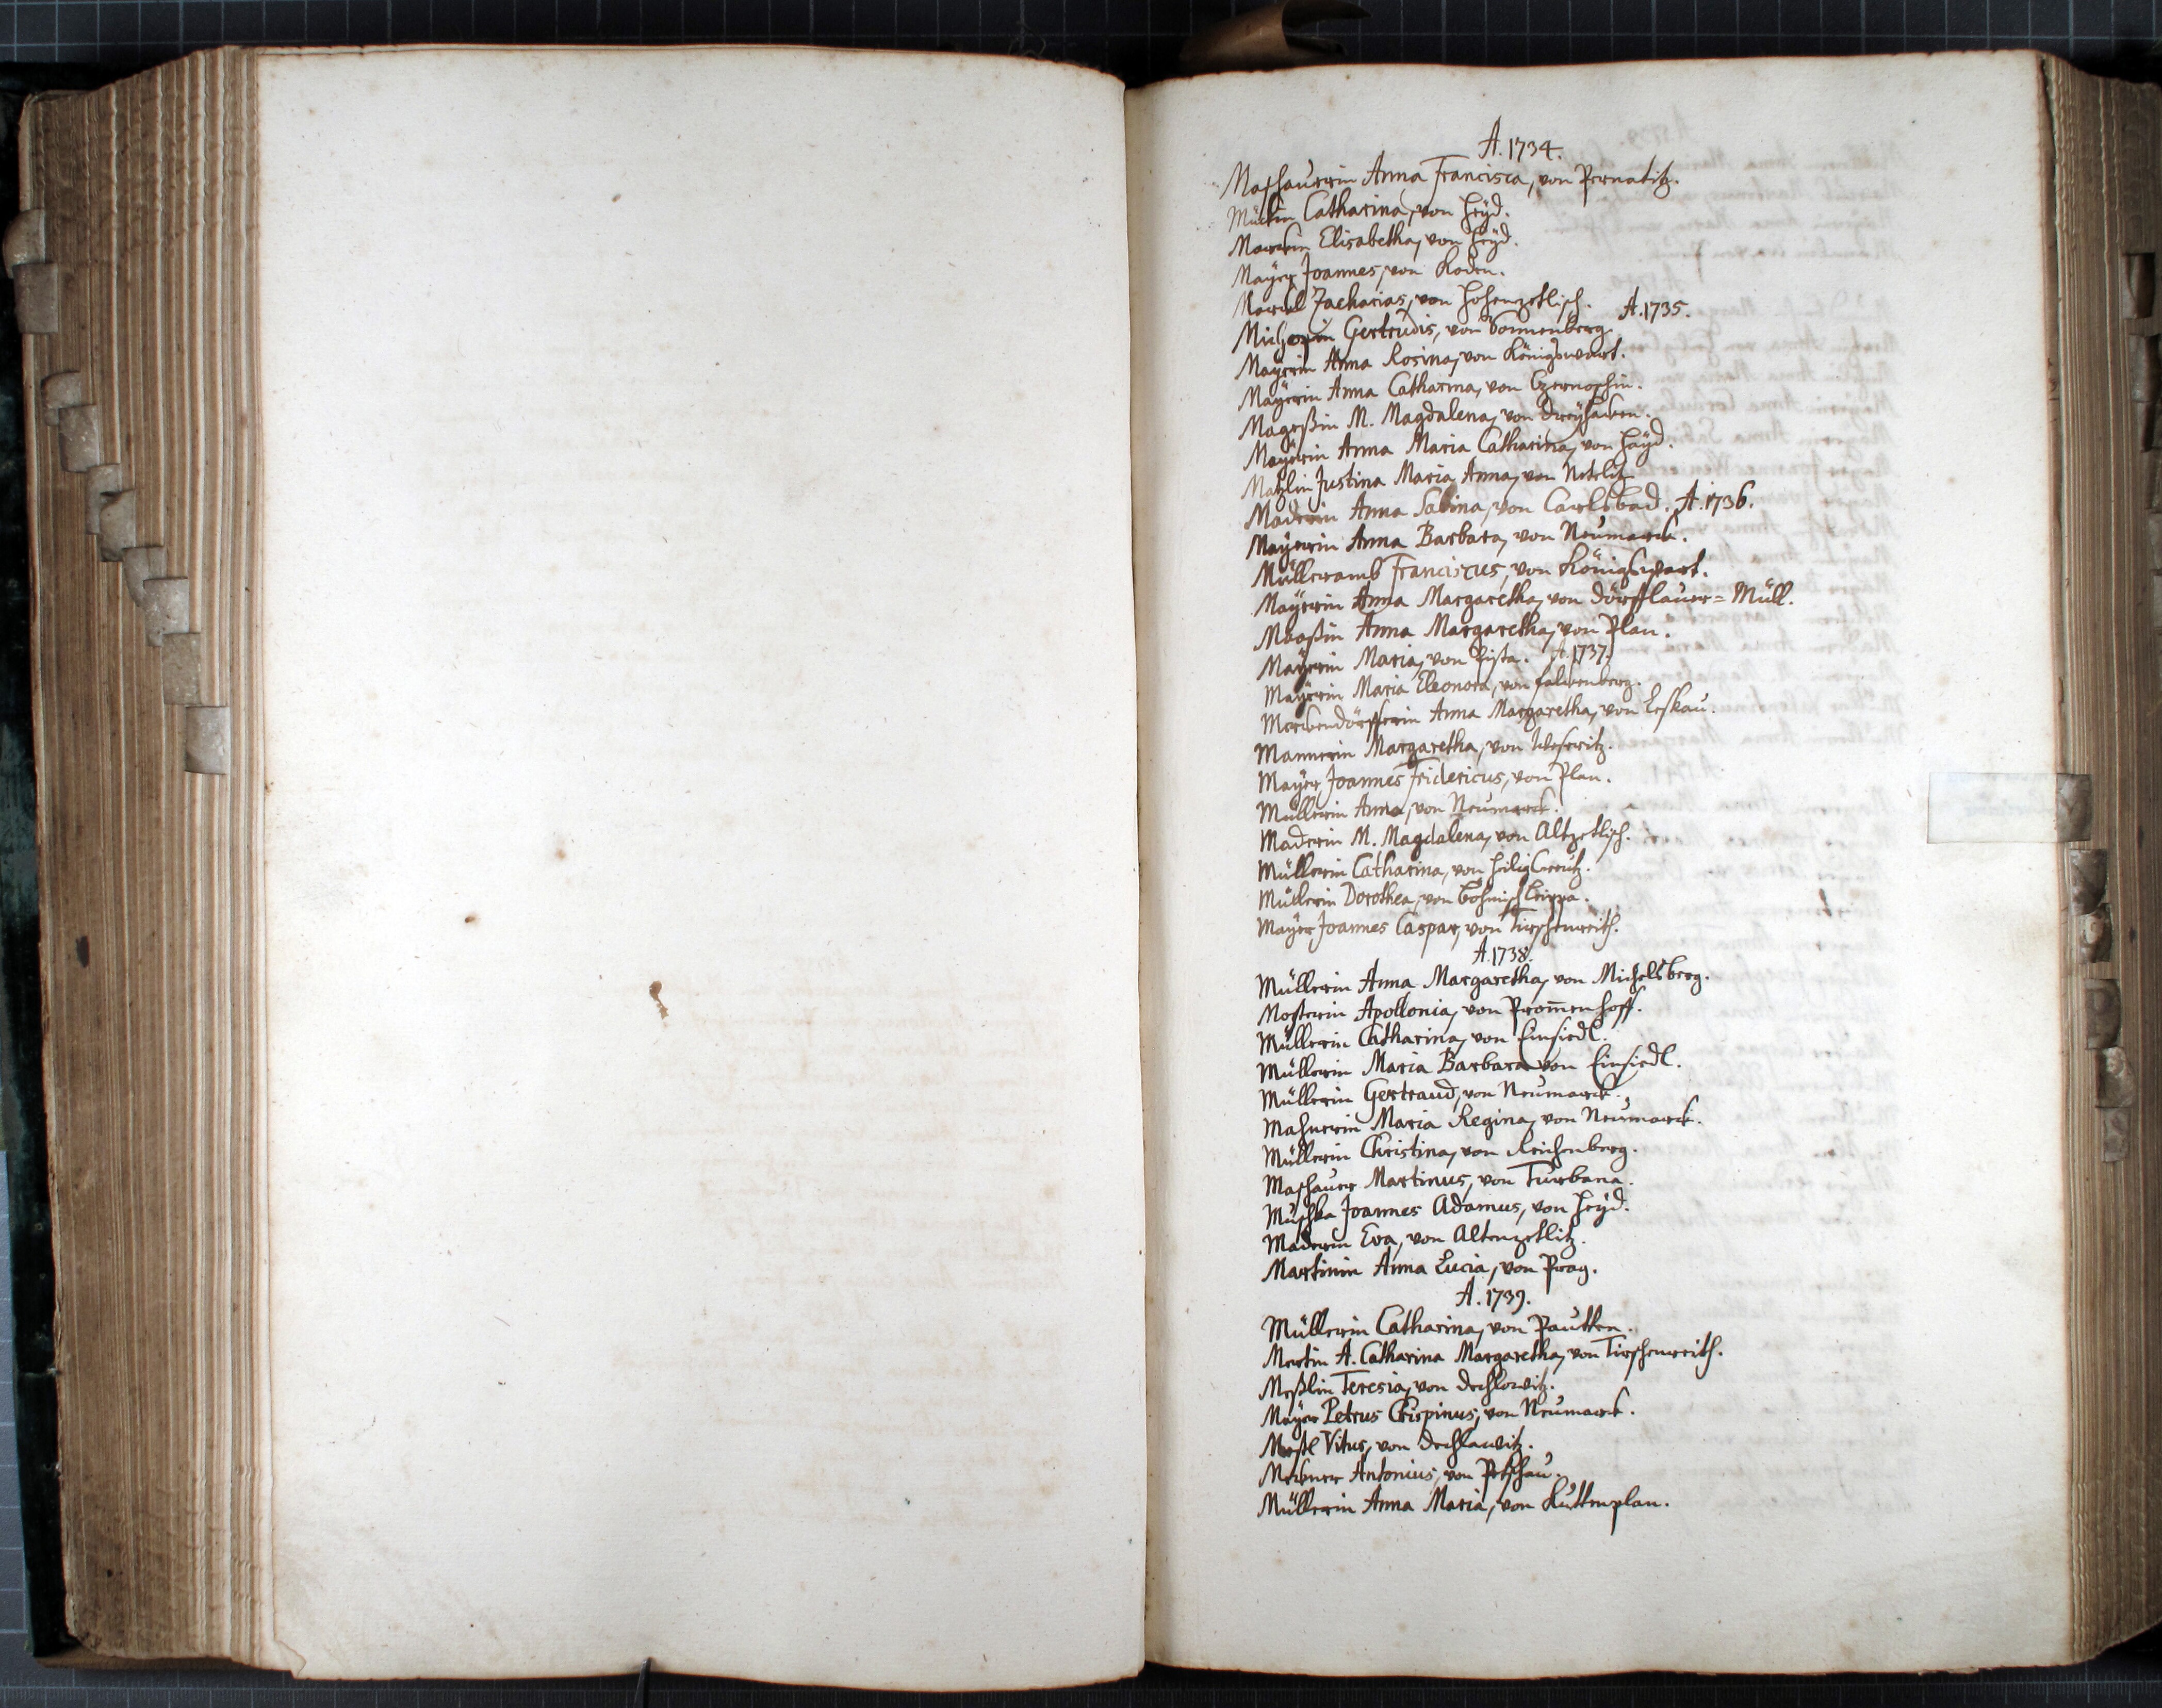 A. 1734.
Maschaurin Anna Francisca, von Pernatitz.
Catharina, von Heÿd.
Elisabetha, von Heÿd.
Maÿer Joannes, von Roden.
Zacharias, von Hohenzetlisch. A. 1735.
Gertrudis, von Sonnenberg.
Maÿerin Anna Rosina, von Königswart.
Maÿerin Anna Catharina, von Czernoschin.
M. Magdalena, von Dreÿhacken.
Maÿerin Anna Maria Catharina, von Haÿd.
Justina Maria Anna, von
Maderin Anna Sabina, von Carlsbad. A. 1736.
Maÿerin Anna Barbara, von Neumarck.
Franciscus, von Königswart.
Maÿerin Anna Margaretha, von Dörfflauer=Müll.
Anna Margaretha, von Plan.
Maÿerin Maria, von Pista. A. 1737.
Maÿerin Maria Eleonora, von Falckenberg.
Merckendörfferin Anna Margaretha, von Leskau.
Mannerin Margaretha, von Weseritz.
Maÿer Joannes Fridericus, von Plan.
Müllerin Anna, von Neumarck.
Maderin M. Magdalena, von Altzetlisch.
Müllerin Catharina, von Heilig Creutz.
Müllerin Dorothea, von Böhmisch Leippa.
Maÿer Joannes Caspar, von Tirschenreith.
A. 1738.
Müllerin Anna Margaretha, von Michelsberg.
Mosterin Apollonia, von Prom̄enhoff.
Müllerin Catharina, von Einsiedl.
Müllerin Maria Barbara von Einsiedl.
Müllerin Gertraud, von Neumarck.
Maria Regina, von Neumarck.
Müllerin Christina, von Reichenberg.
Maschauer Martinus, von Turbana.
Muschka Joannes Adamus, von Heÿd.
Maderin Eva, von Altenzetlitz.
Martinin Anna Lucia, von Prag.
A. 1739.
Müllerin Catharina, von Pautten.
A. Catharina Margaretha, von Tirschenreith.
Meßlin Teresia, von Dechlowitz.
Maÿer Petrus Crispinus, von Neumarck.
Vitus, von Dechlawitz.
Antonius, von Petschau.
Müllerin Anna Maria, von Kuttenplan.